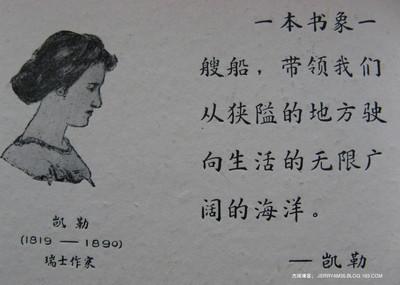 一本书象一
艘船，带领我们
从狭隘的地方驶
向生活的无限广
阔的海洋。
—凯勒
凯勒
(1819—1890)
瑞士作家
杰瑞博客：JERRYAM35.BLOG.163.COM